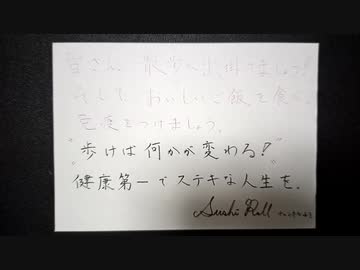 皆さん 散歩へ出掛けましょう!
そして おいしいご飯を食べ、
色度をつけましょう。
"歩けば何かが変わる!"
"健康第一でステキな人生を。
Sushi Roll